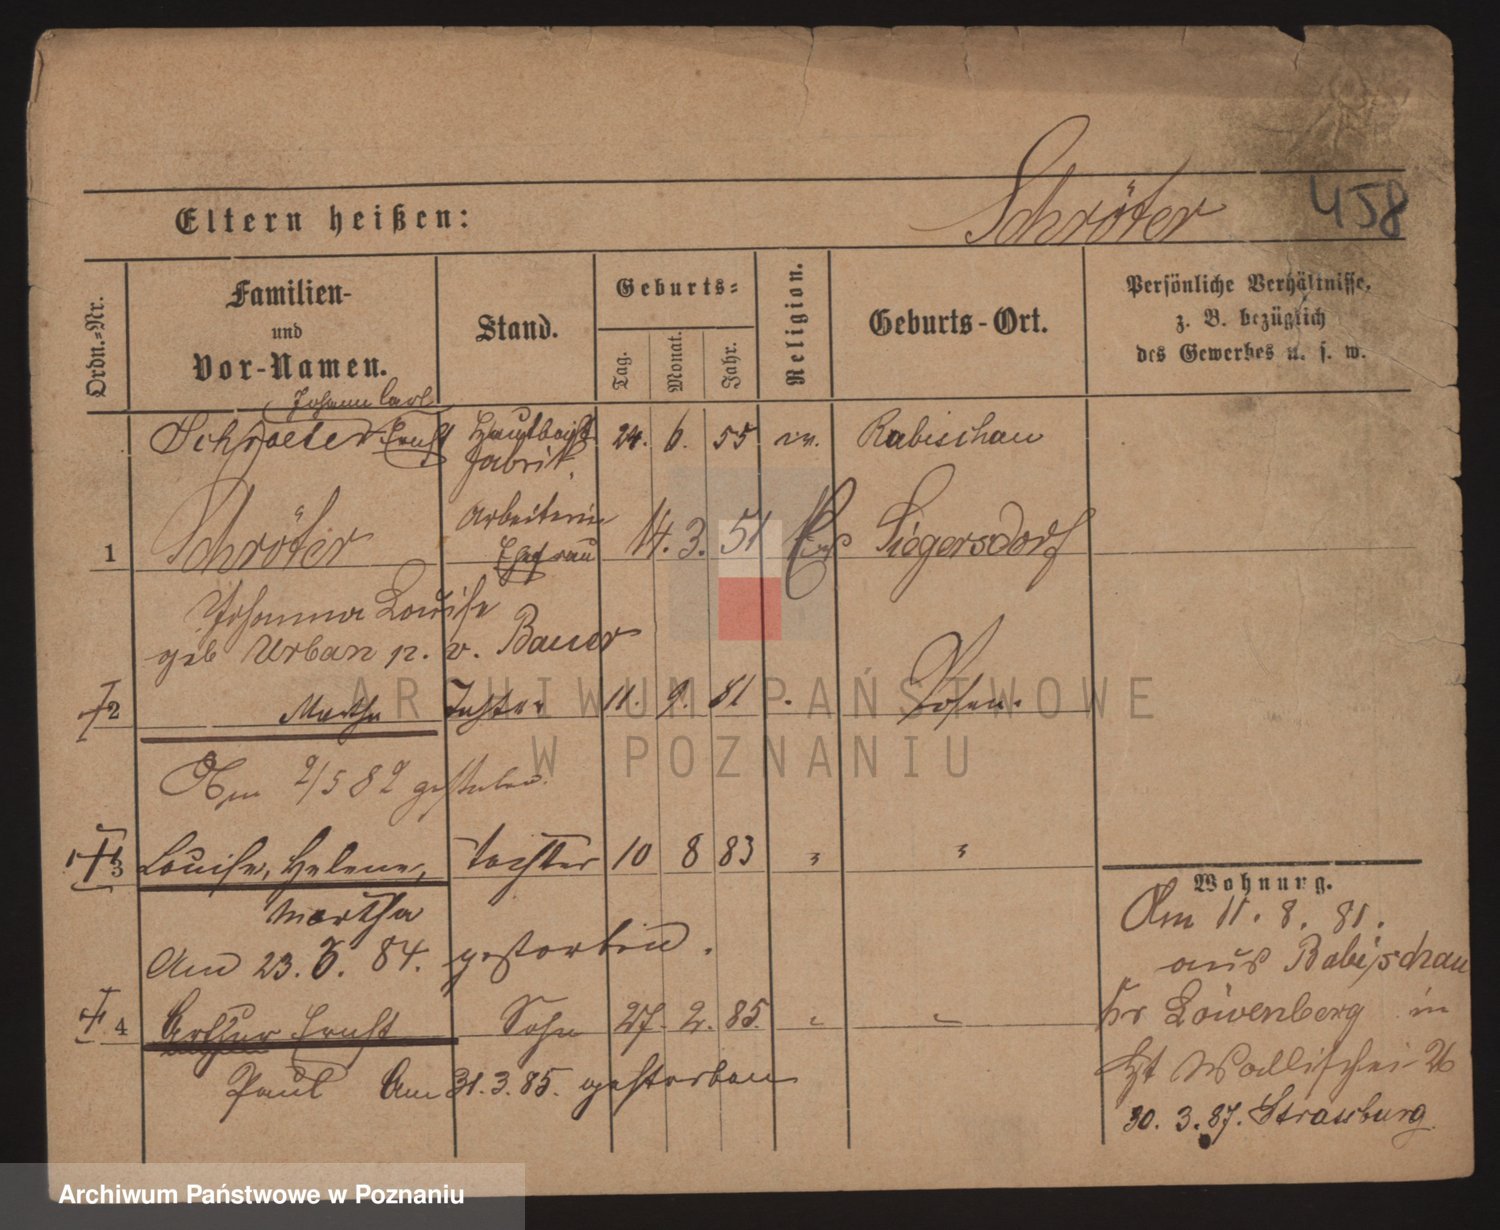 Schröter 458
Eltern heißen:
Ordn.-Nr.
Familien-
und
Vor-Namen.
Stand.
Geburts-
Tag.
Monat.
Jahr.
Religion.
Geburts-Ort.
Persönliche Verhältnisse,
z. B. bezüglich
des Gewerbes u. s. w.
Johann Carl
Schroeter Ernst
fabrik. 24. 6. 55 ev. Rabischau
1 Schröter Arbeiterin Ehefrau 14. 3. 51 Siegersdorf
Johanna Louise
geb Urban p. v. Bauer
2 Martha Tochter 11. 9. 81 Posen.
Am 2/5 82 gestorben.
3 Louise, Helene, Tochter 10 8 83 " "
Martha
Am 23. 6. 84. gestorben.
4 Arthur Ernst Sohn 27. 2. 85. " "
Paul Am 31. 3. 85. gestorben
Wohnung.
Am 11. 8. 81.
aus Rabischau
Kr Löwenberg in
Wallischei 26
30. 3. 87. Strassburg.
ARCHIWUM PAŃSTWOWE
W POZNANIU
Archiwum Państwowe w Poznaniu